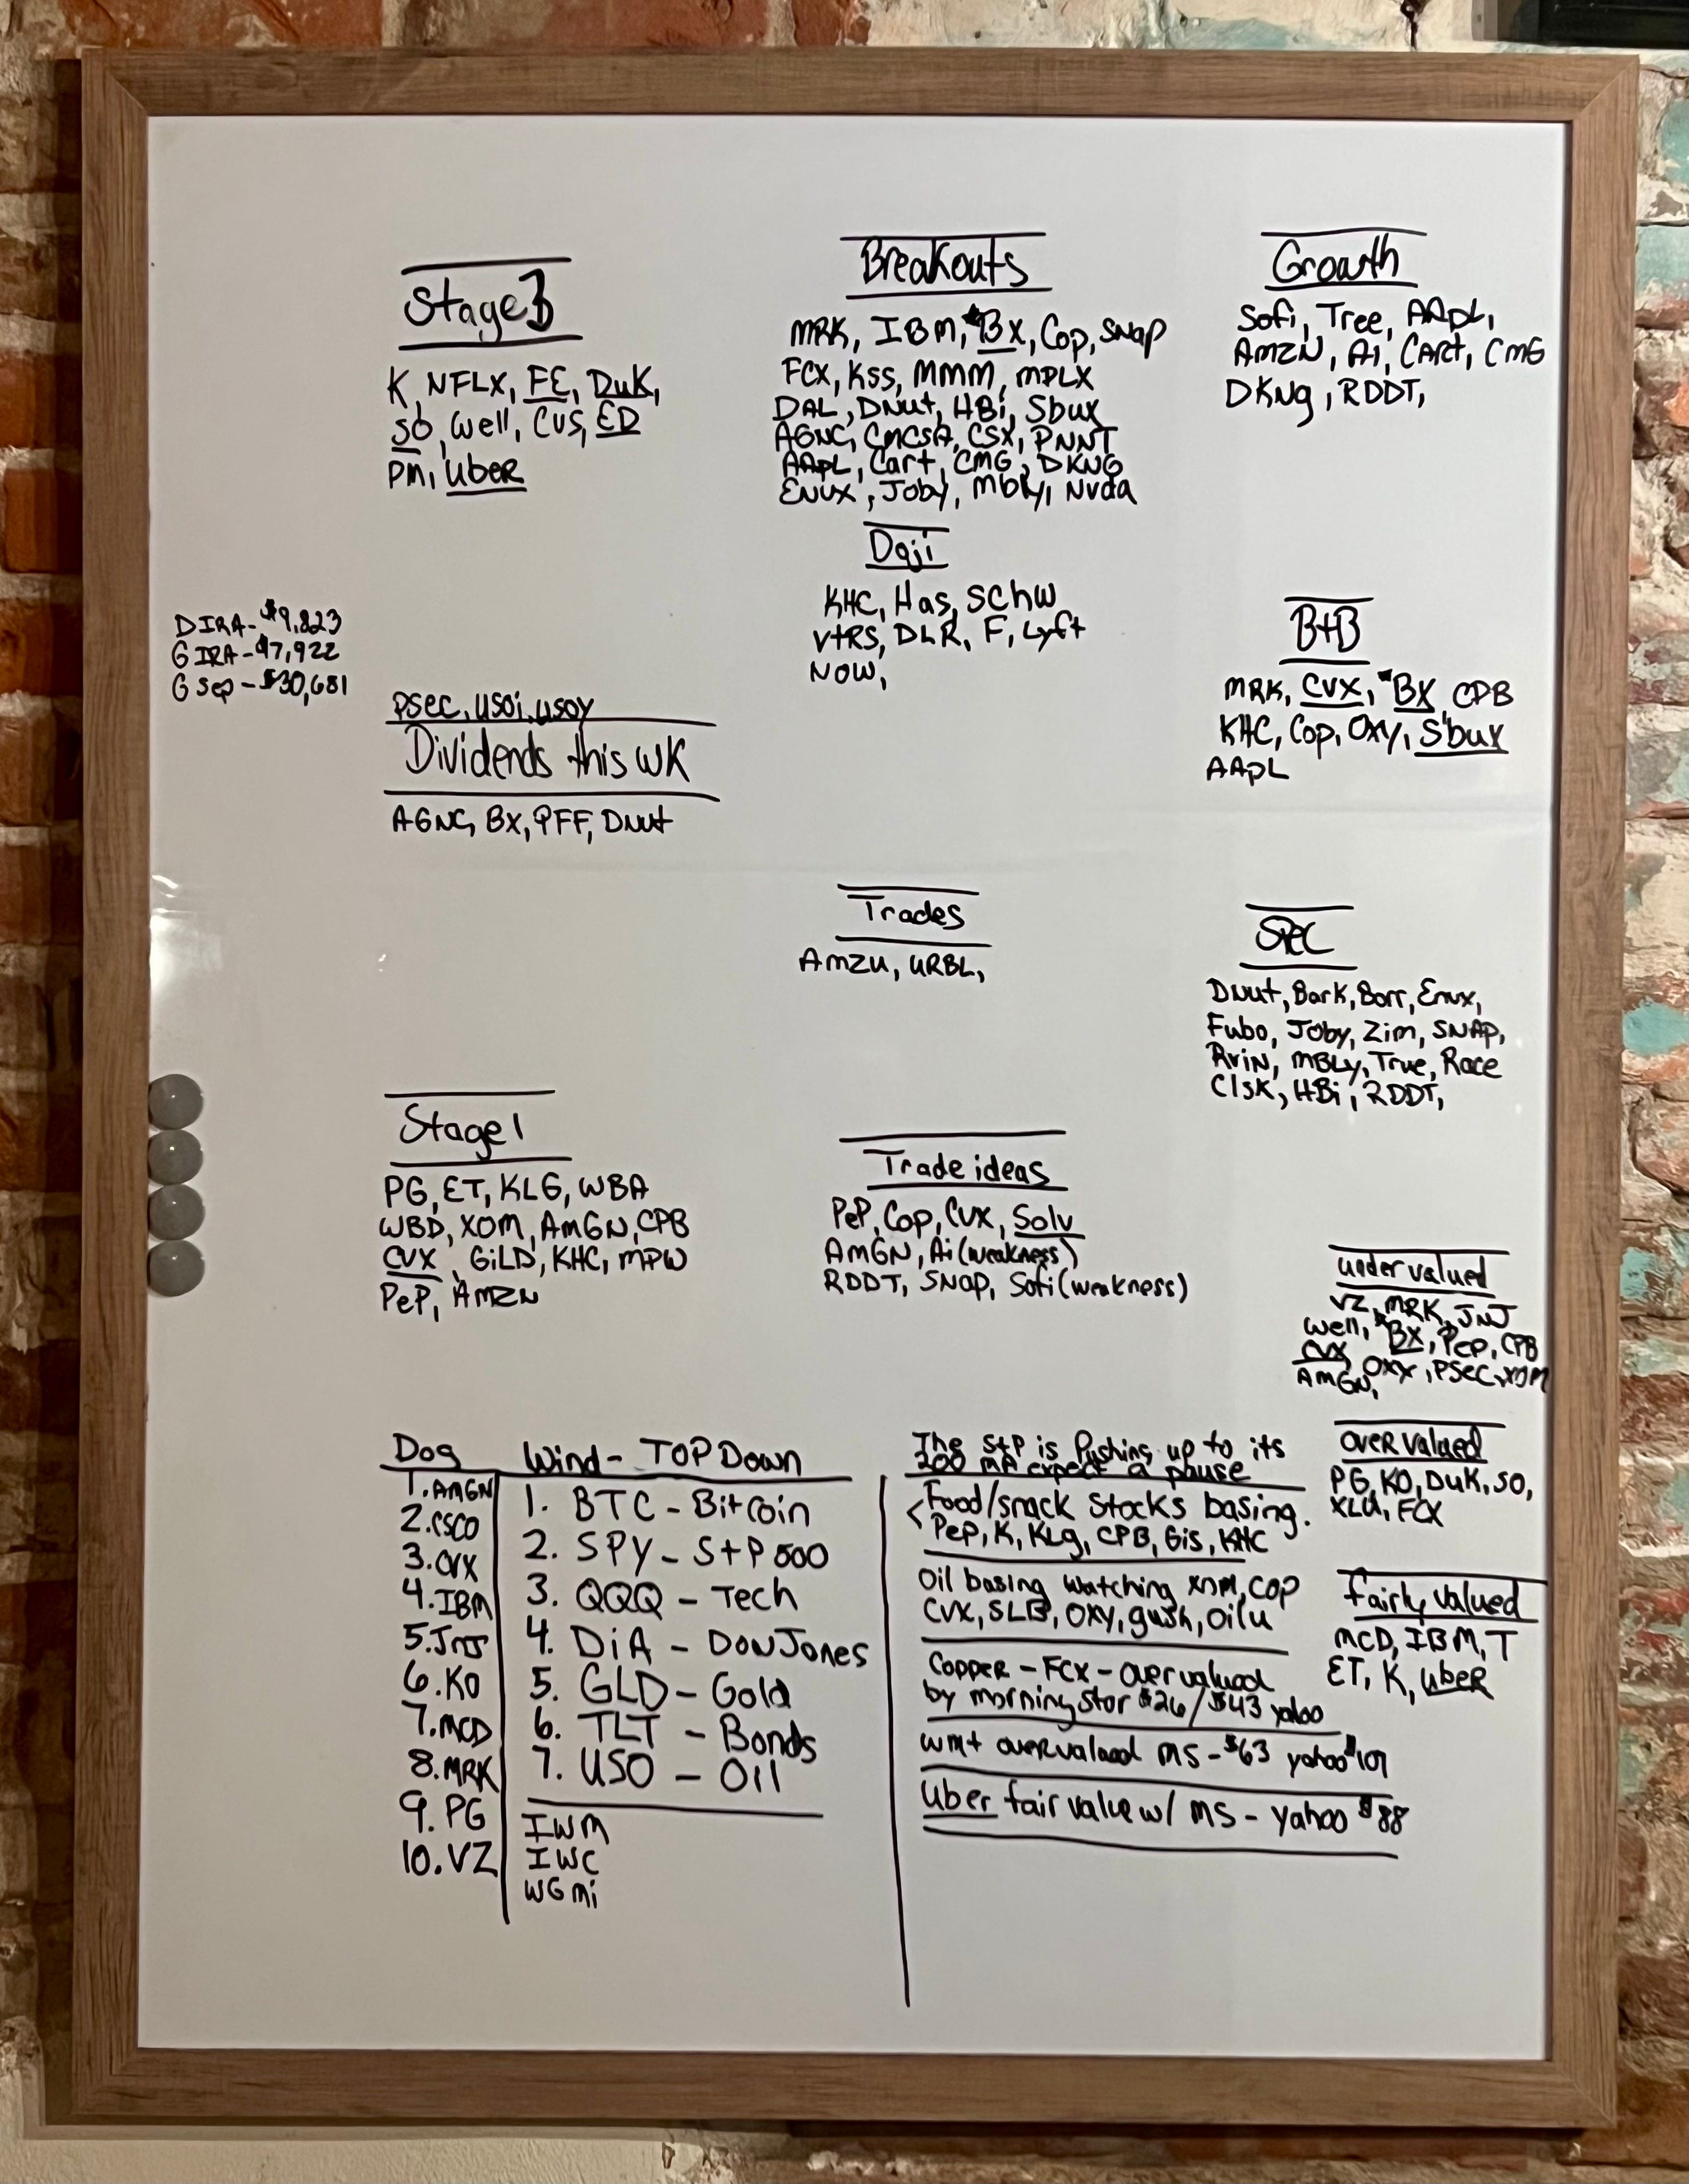 Stage 3
K, NFLX, FE, DUK,
SO, Well, CVS, ED
PM, Uber
Breakouts
MRK, IBM, *BX, Cop, SNap
FCX, KSS, MMM, MPLX
DAL, DNut, HBi, Sbux
AGNC, CMCSA, CSX, PNNT
AApL, Cart, CMG, DKNG
ENVX, Joby, Mbly, Nvda
Growth
Sofi, Tree, AApL,
AMZN, Ai, CArt, CMG
DKNg, RDDT,
Doji
KHC, Has, SChW
VtRS, DLR, F, Lyft
NOW,
DIRA - $9,823
G IRA - $7,922
G Sep - $30,681
B+B
MRK, CVX, *BX CPB
KHC, Cop, Oxy, Sbux
AApL
PSEC, USOi, USOY
Dividends this WK
AGNC, BX, PFF, DNut
Trades
AMZU, URBL,
SPEC
DNut, Bark, Borr, Envx,
Fubo, Joby, Zim, SNAP,
RViN, MBLy, True, Race
ClsK, HBi, RDDT,
Stage 1
PG, ET, KLG, WBA
WBD, XOM, AMGN, CPB
CVX, GiLD, KHC, MPW
PeP, AMZN
Trade ideas
PeP, Cop, CVX, Solv
AMGN, Ai (weakness)
RDDT, SNAP, Sofi (weakness)
under valued
VZ, MRK, JNJ
Well, *BX, Pep, CPB
CVX OXY, PSEC, XOM
AMGN,
over valued
PG, KO, DUK, SO,
XLU, FCX
fairly valued
MCD, IBM, T
ET, K, Uber
Dog
1. AMGN
2. CSCO
3. CVX
4. IBM
5. JNJ
6. KO
7. MCD
8. MRK
9. PG
10. VZ
Wind - TOP Down
1. BTC - Bitcoin
2. SPY - S+P 500
3. QQQ - Tech
4. DiA - DOW Jones
5. GLD - Gold
6. TLT - Bonds
7. USO - Oil
IWM
IWC
WGMi
The S+P is Pushing up to its
200 MA expect a pause
Food/snack Stocks basing.
PeP, K, KLg, CPB, Gis, KHC
Oil basing watching XOM, COP
CVX, SLB, OXY, gush, oilu
Copper - FCX - over valued
by morning star $26/$43 yahoo
WMt overvalued MS - $63 yahoo $101
Uber fair value w/ MS - yahoo $88